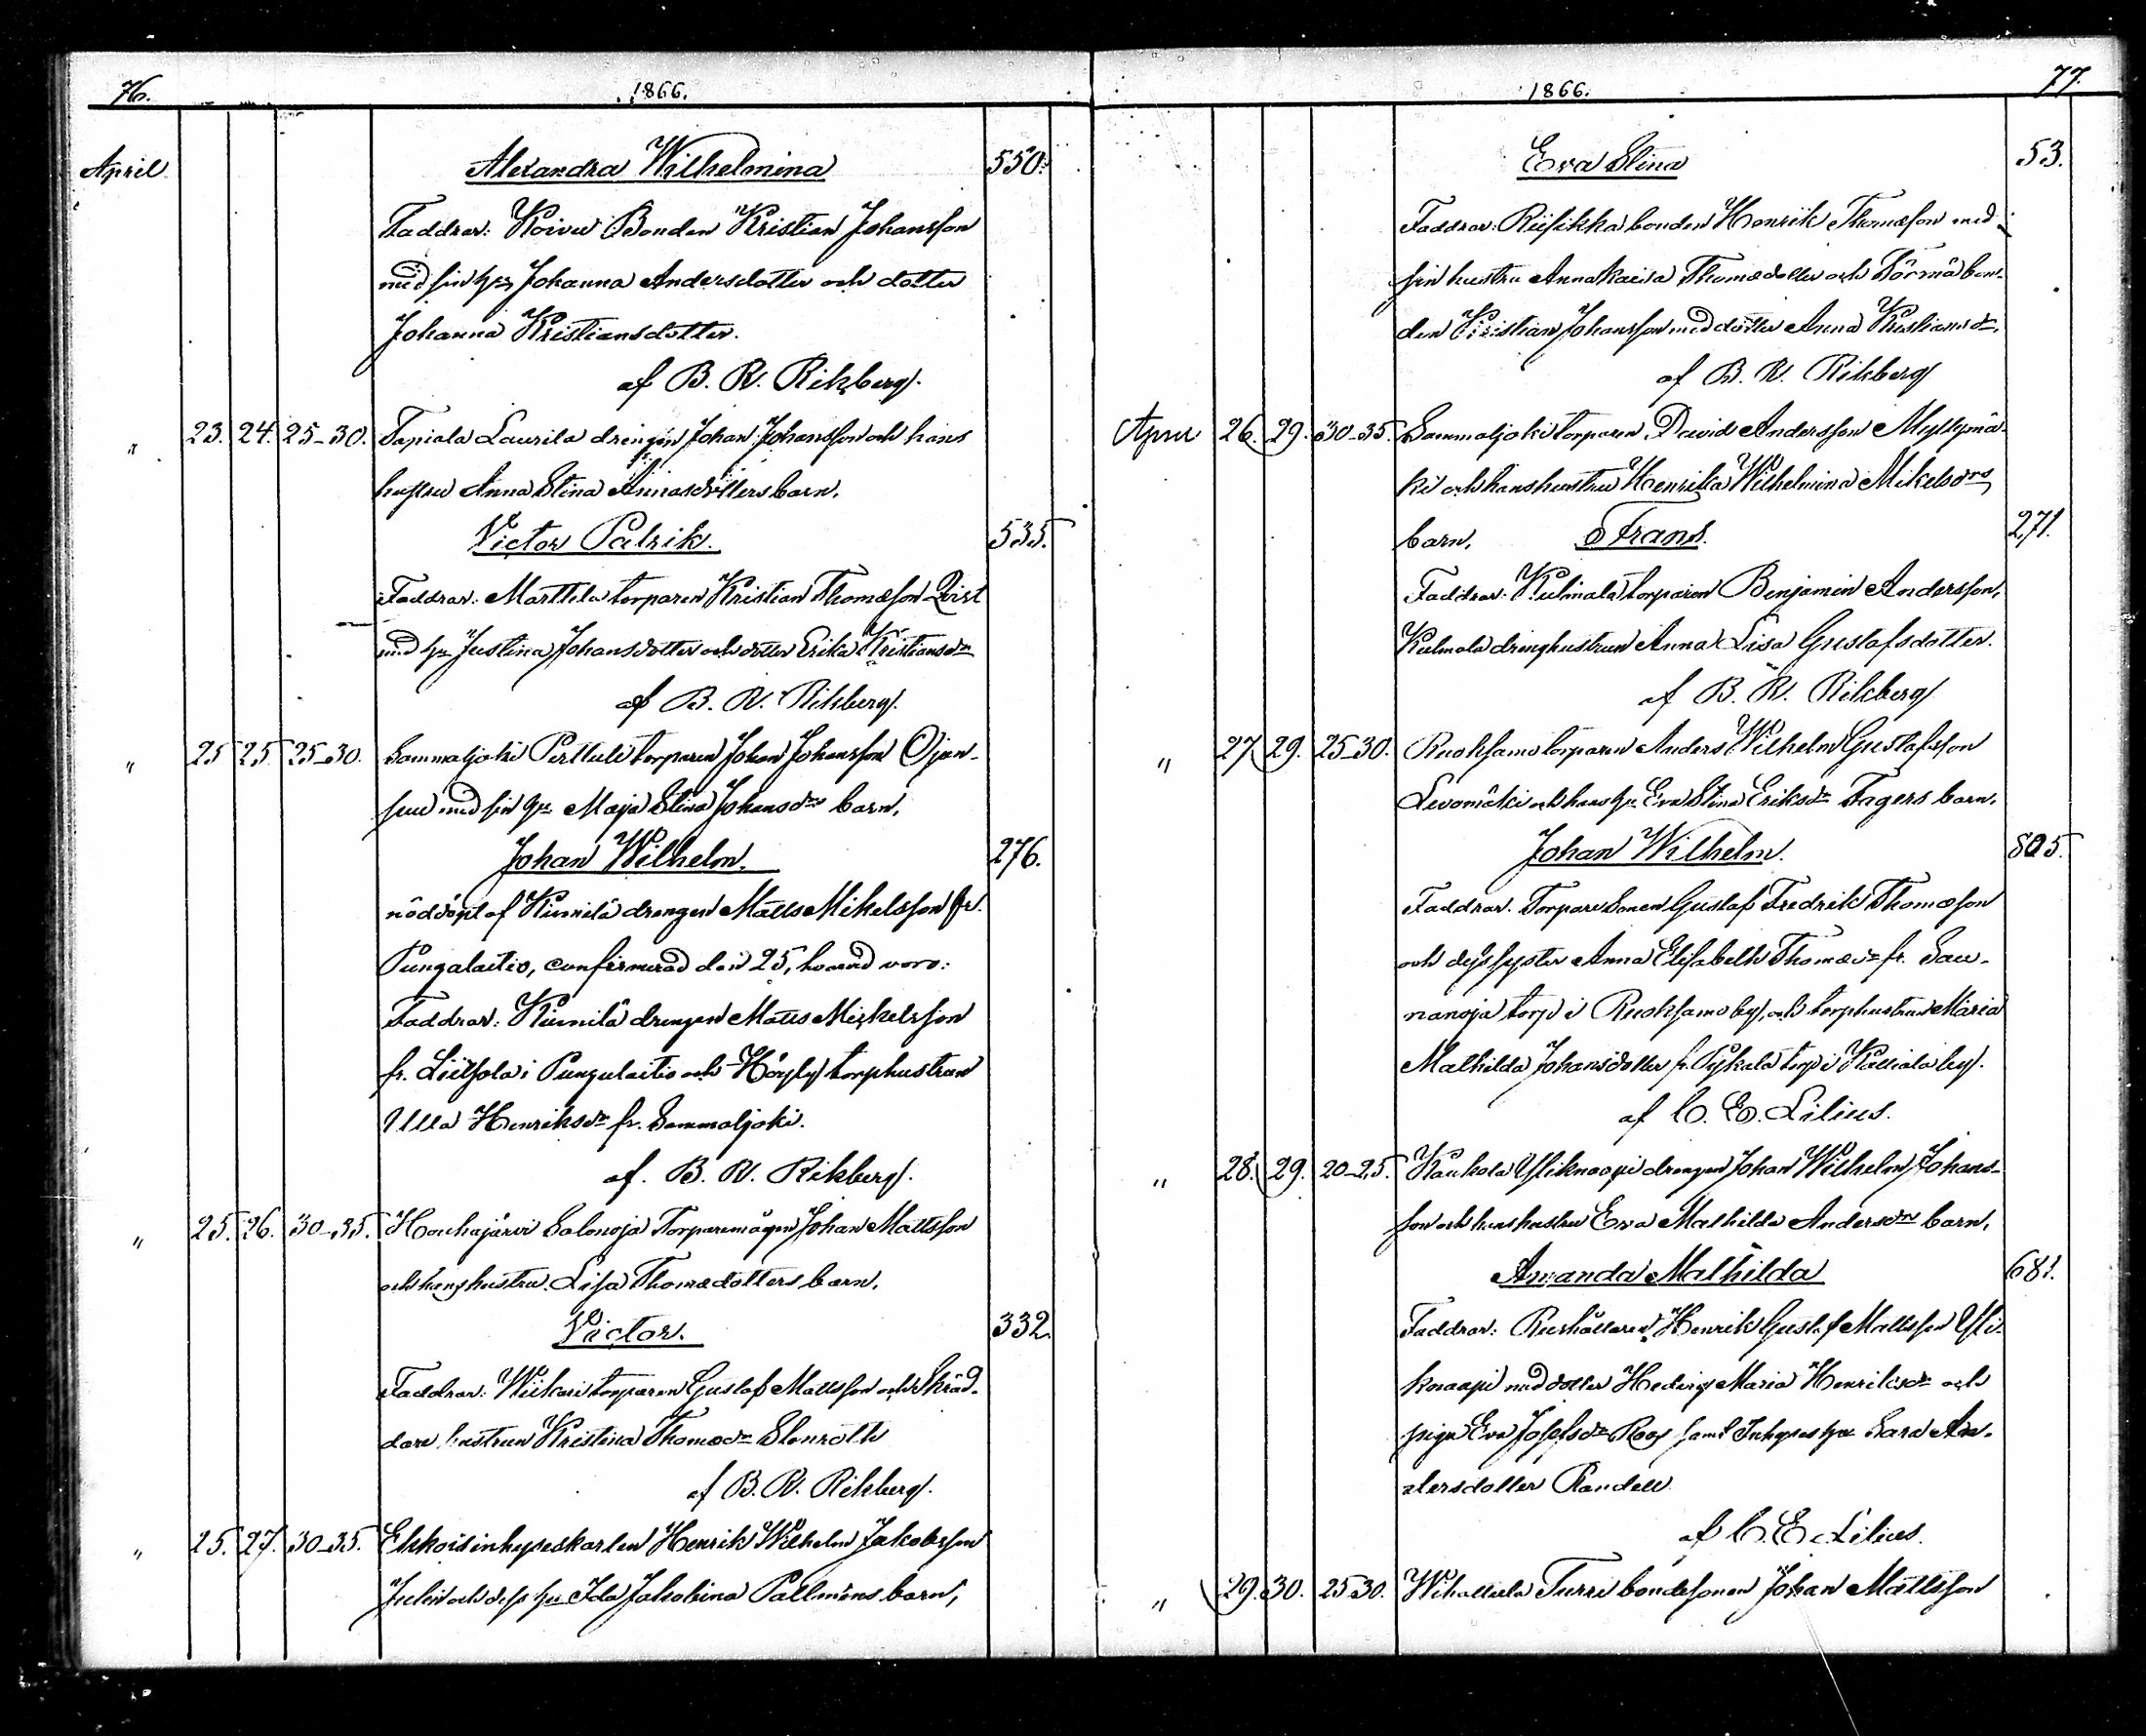 76.
1866.
April
Alexandra Wilhelmina 550.
Faddrar: Koivu Bonden Kristian Johansson
med sin hu Johanna Andersdotter och dotter
Johanna Kristiansdotter.
af B. R. Rikberg.
" 23. 24. 25-30. Tapiala Laurila drengen Johan Johansson och hans
hustru Anna Stina Annasdotters barn,
Victor Patrik. 535.
Faddrar: Marttila torparen Kristian Thomæson Qvist
med hu Justina Johansdotter och dotter Erika Kristiansdr
af B. R. Rikberg.
" 25 25. 25-30. Sammaljoki Perttuli torparen Johan Johansson Ojan-
suu med sin hu Maja Stina Johansdrs barn,
Johan Wilhelm. 276.
nöddöpt af Kiimilä drengen Matts Mikelsson fr.
Pungalaitio, confirmerad den 25, hvarvid voro:
Faddrar: Kiimilä drengen Matts Mickelsson
fr. Liitsola i Pungalaitio och Höyly torphustrun
Ulla Henriksdr fr. Sammaljoki.
af. B. R. Rikberg.
" 25. 26. 30-35. Houhajärvi Salonoja Torparemågen Johan Mattsson
och hans hustru Lisa Thomædotters barn,
Victor. 332.
Faddrar: Wiikari torparen Gustaf Mattsson och Skräd-
dare hustrun Kristina Thomædr Stenroth
af B. R. Rikberg.
" 25. 27. 30-35. Ekkois inhyseskarlen Henrik Wilhelm Jakobsson
Julin och dess hu Ida Jakobina Pallméns barn,
1866.
77.
Eva Stina 53.
Faddrar: Riisikka bonden Henrik Thomæson med
sin hustru Anna Kaisa Thomædotter och Törmä bon-
den Kristian Johansson med dotter Anna Kristiansdr.
af B. R. Rikberg
April 26. 29. 30-35. Sammaljoki torparen David Andersson Myllymä-
ki och hans hustru Henrika Wilhelmina Mikelsdrs
barn, Frans. 271.
Faddrar: Kulmala torparen Benjamin Andersson,
Kulmala drenghustrun Anna Lisa Gustafsdotter.
af B. R. Rikberg
" 27 29. 25-30. Ruoksamo torparen Anders Wilhelm Gustafsson
Levomäki och hans hu Eva Stina Eriksdr Fagers barn.
Johan Wilhelm. 805.
Faddrar. Torpare Sonen Gustaf Fredrik Thomæson
och dess syster Anna Elisabeth Thomædr fr. Sau-
nanoja torp i Ruoksamo by, och torphustrun Maria
Mathilda Johansdotter fr. Pykälä torp i Kalliala by.
af C. E. Lilius.
" 28. 29. 20-25. Kaukola Yliknaapi drengen Johan Wilhelm Johans-
son och hans hustru Eva Mathilda Andersdrs barn,
Amanda Mathilda 681.
Faddrar: Rusthållaren Henrik Gustaf Mattsson Yli-
knaapi med dotter Hedvig Maria Henriksdr och
pigan Eva Josefsdr Roos samt Inhyses hu Sara An-
dersdotter Randell
af C. E. Lilius.
" 29. 30. 25-30. Wihattula Turri bondesonen Johan Mattsson